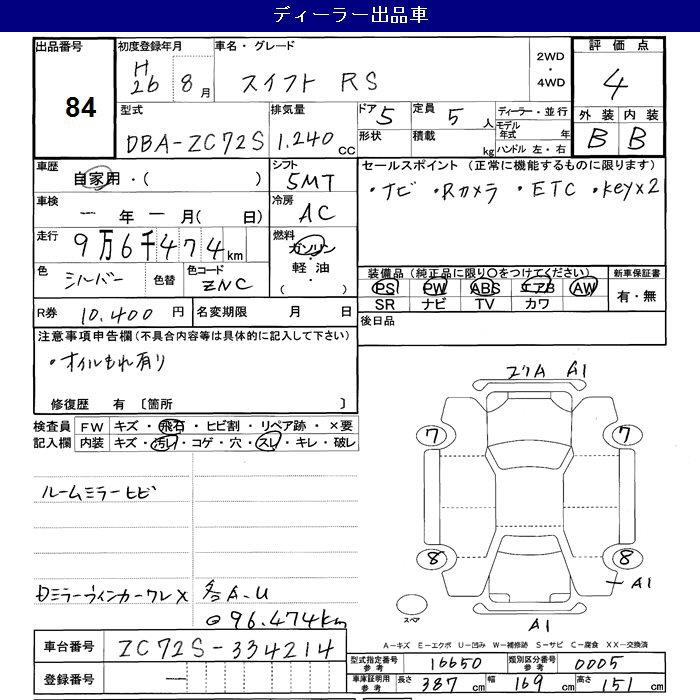 ディーラー出品車
出品番号 84
初度登録年月 H26 8月
車名・グレード スイフト RS
2WD・4WD
評価点 4
型式 DBA-ZC72S
排気量 1.240 CC
ドア 5
形状
定員 5 人
積載 kg
ディーラー・並行
モデル年式 年
ハンドル 左・右
外装 B
内装 B
車歴 自家用・( )
シフト 5MT
セールスポイント(正常に機能するものに限ります)
・ナビ ・Rカメラ ・ETC ・keyx2
車検 ー年ー月( 日)
冷房 AC
走行 9万6千474km
燃料 ガソリン・軽油・( )
色 シルバー
色替
色コード ZNC
装備品(純正品に限り○をつけてください)
PS PW ABS エアB AW
SR ナビ TV カワ
新車保証書 有・無
R券 10.400 円
名変期限 月 日
後日品
注意事項申告欄(不具合内容等は具体的に記入して下さい)
・オイルもれ有り
修復歴 有 〔箇所 〕
検査員記入欄
FW キズ・飛石・ヒビ割・リペア跡・×要
内装 キズ・汚レ・コゲ・穴・スレ・キレ・破レ
ルームミラーヒビ
ミラーウィンカーワレX
各A-U
96.474km
A1
7 7
8 8
A1
スペア
A1
A-キズ E-エクボ U-凹み W-補修跡 S-サビ C-腐食 XX-交換済
車台番号 ZC72S-334214
登録番号 ー
型式指定番号参考 16650
類別区分番号参考 0005
車庫証明用参考 長さ 387 cm 幅 169 cm 高さ 151 cm